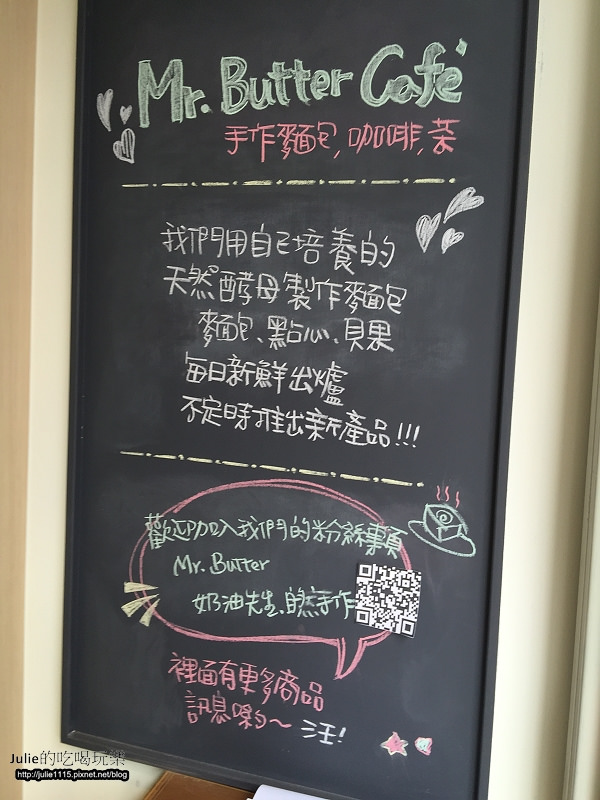 Mr. Butter Café
手作麵包,咖啡,茶
我們用自己培養的
天然酵母製作麵包
麵包、點心、貝果
每日新鮮出爐
不定時推出新產品!!!
歡迎加入我們的粉絲專頁
Mr. Butter
奶油先生.自然手作
裡面有更多商品
訊息喲~ 汪!
Julie的吃喝玩樂
http://julie1115.pixnet.net/blog